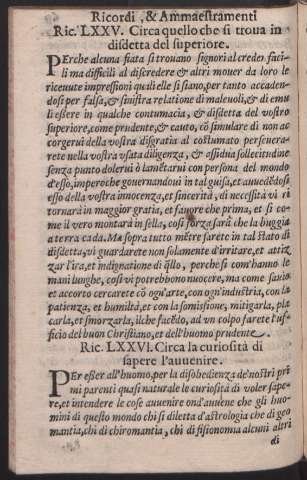 Ricordi, & Ammaestramenti
Ric. LXXV. Circa quello che si troua in
disdetta del superiore.
PErche alcuna fiata si trouano signori al creder faci-
li ma difficili al discredere & altri mouer da loro le
riceuute impressioni quali elle si siano, per tanto accaden-
dosi per falsa, & sinistra relatione di maleuoli, & di emu
li essere in qualche contumacia, & disdetta del vostro
superiore, come prudente, & cauto, cõ simulare di non ac-
corgerui della vostra disgratia al costumato perseuera-
rete nella vostra vsata diligenza, & assidua sollecitudine
senza punto dolerui ò lamẽtarui con persona del mondo
d'esso, imperoche gouernandoui in tal guisa, et auuedẽdosi
esso della vostra innocenza, et sincerità, di necessità vi ri
tornarà in maggior gratia, et fauore che prima, et si co-
me il vero montarà in sella, così forza sarà che la buggia
a terra cada. Ma sopra tutto mẽtre sarete in tal stato di
disdetta, vi guardarete non solamente d'irritare, et attiz
zar l'ira, et indignatione di q̃llo, perche si com'hanno le
mani lunghe, così vi potrebbono nuocere, ma come sauio,
et accorto cercarete cõ ogn'arte, con ogn'industria, con la
patienza, et humiltà, et con la somissione, mitigarla, pla
carla, et smorzarla, il che facẽdo, ad vn colpo farete l'uf-
ficio del buon Christiano, et dell'huomo prudente.
Ric. LXXVI. Circa la curiosità di
sapere l'auuenire.
PEr esser all'huomo, per la disobedienza de'nostri pri
mi parenti quasi naturale le curiosità di voler sape-
re, et intendere le cose auuenire ond'auuene che gli huo-
mini di questo mondo chi si diletta d'astrologia che di geo
mantia, chi di chiromantia, chi di fisionomia alcuni altri
di